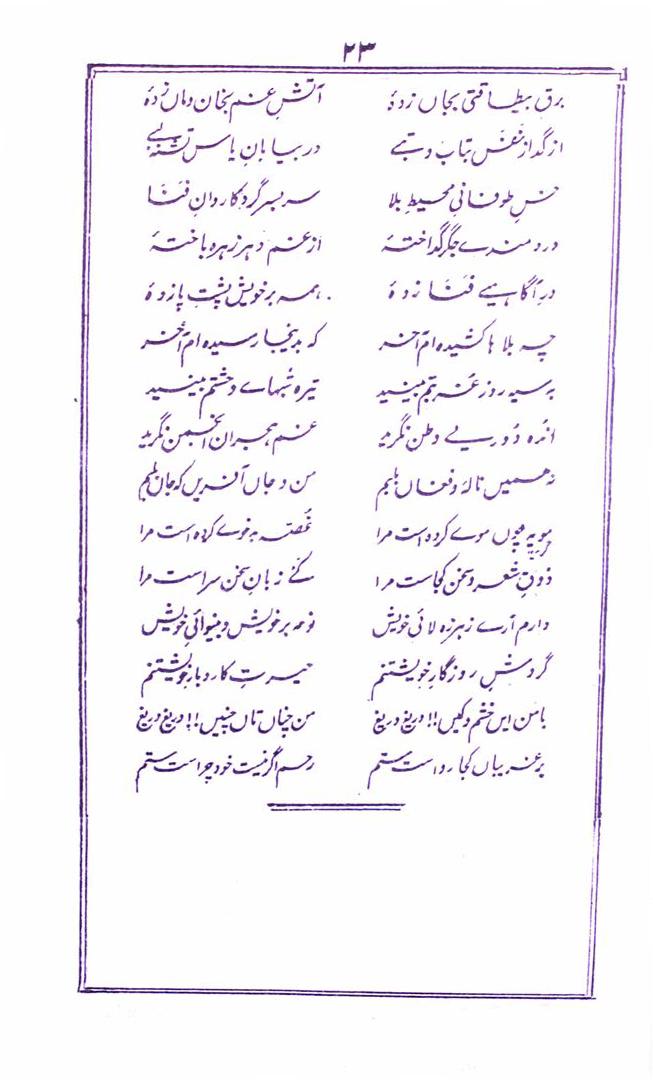 ۲۳
برقِ بیطاقتی بجاں زدۂ آتشِ غم بخان و ماں زدۂ
از گدازِ نفس بتاب و تبے در بیابانِ یاس تشنہ لبے
خسِ طوفانیِ محیطِ بلا سر بسر گردِ کاروانِ فنا
دردمندے جگر گداختۂ از غمِ دہر زہرہ باختۂ
در آگاہیے فنا زدۂ ہمہ بر خویش پشتِ پا زدۂ
چہ بلاہا کشیدہ ام آخر کہ بدینجا رسیدہ ام آخر
بہ سیہ روزِ غربتم بینید تیرہ شبہاے وحشتم بینید
اندہ دوریے وطن نگرید غم ہجرانِ انجمن نگرید
نہ ہمیں نالہ و فغاں بلبم من و جاں آفریں کہ جاں بلبم
مویہ چوں موے کردہ است مرا غصہ بدخوے کردہ است مرا
ذوقِ شعر و سخن کجاست مرا کے زبانِ سخن سراست مرا
دارم آرے ز ہرزہ لائی خویش نوحہ بر خویش و بینوائی خویش
گردشِ روزگارِ خویشتنم حیرتِ کار و بارِ خویشتنم
با من ایں خشم و کیں!! دریغ دریغ من چناں تاں چنیں!! دریغ دریغ
بر غریباں کجا رواست ستم رحم اگر نیست خود چراست ستم